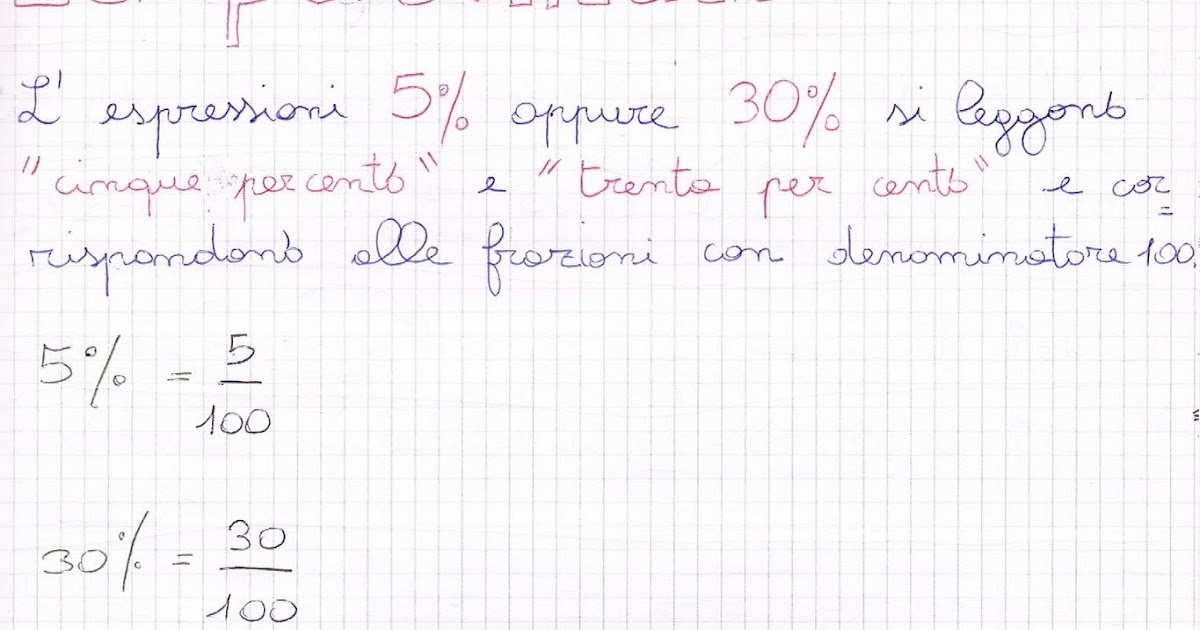 L' espressioni 5% oppure 30% si leggono
"cinque per cento" e "trenta per cento" e cor=
rispondono alle frazioni con denominatore 100.
5% = 5/100
30% = 30/100